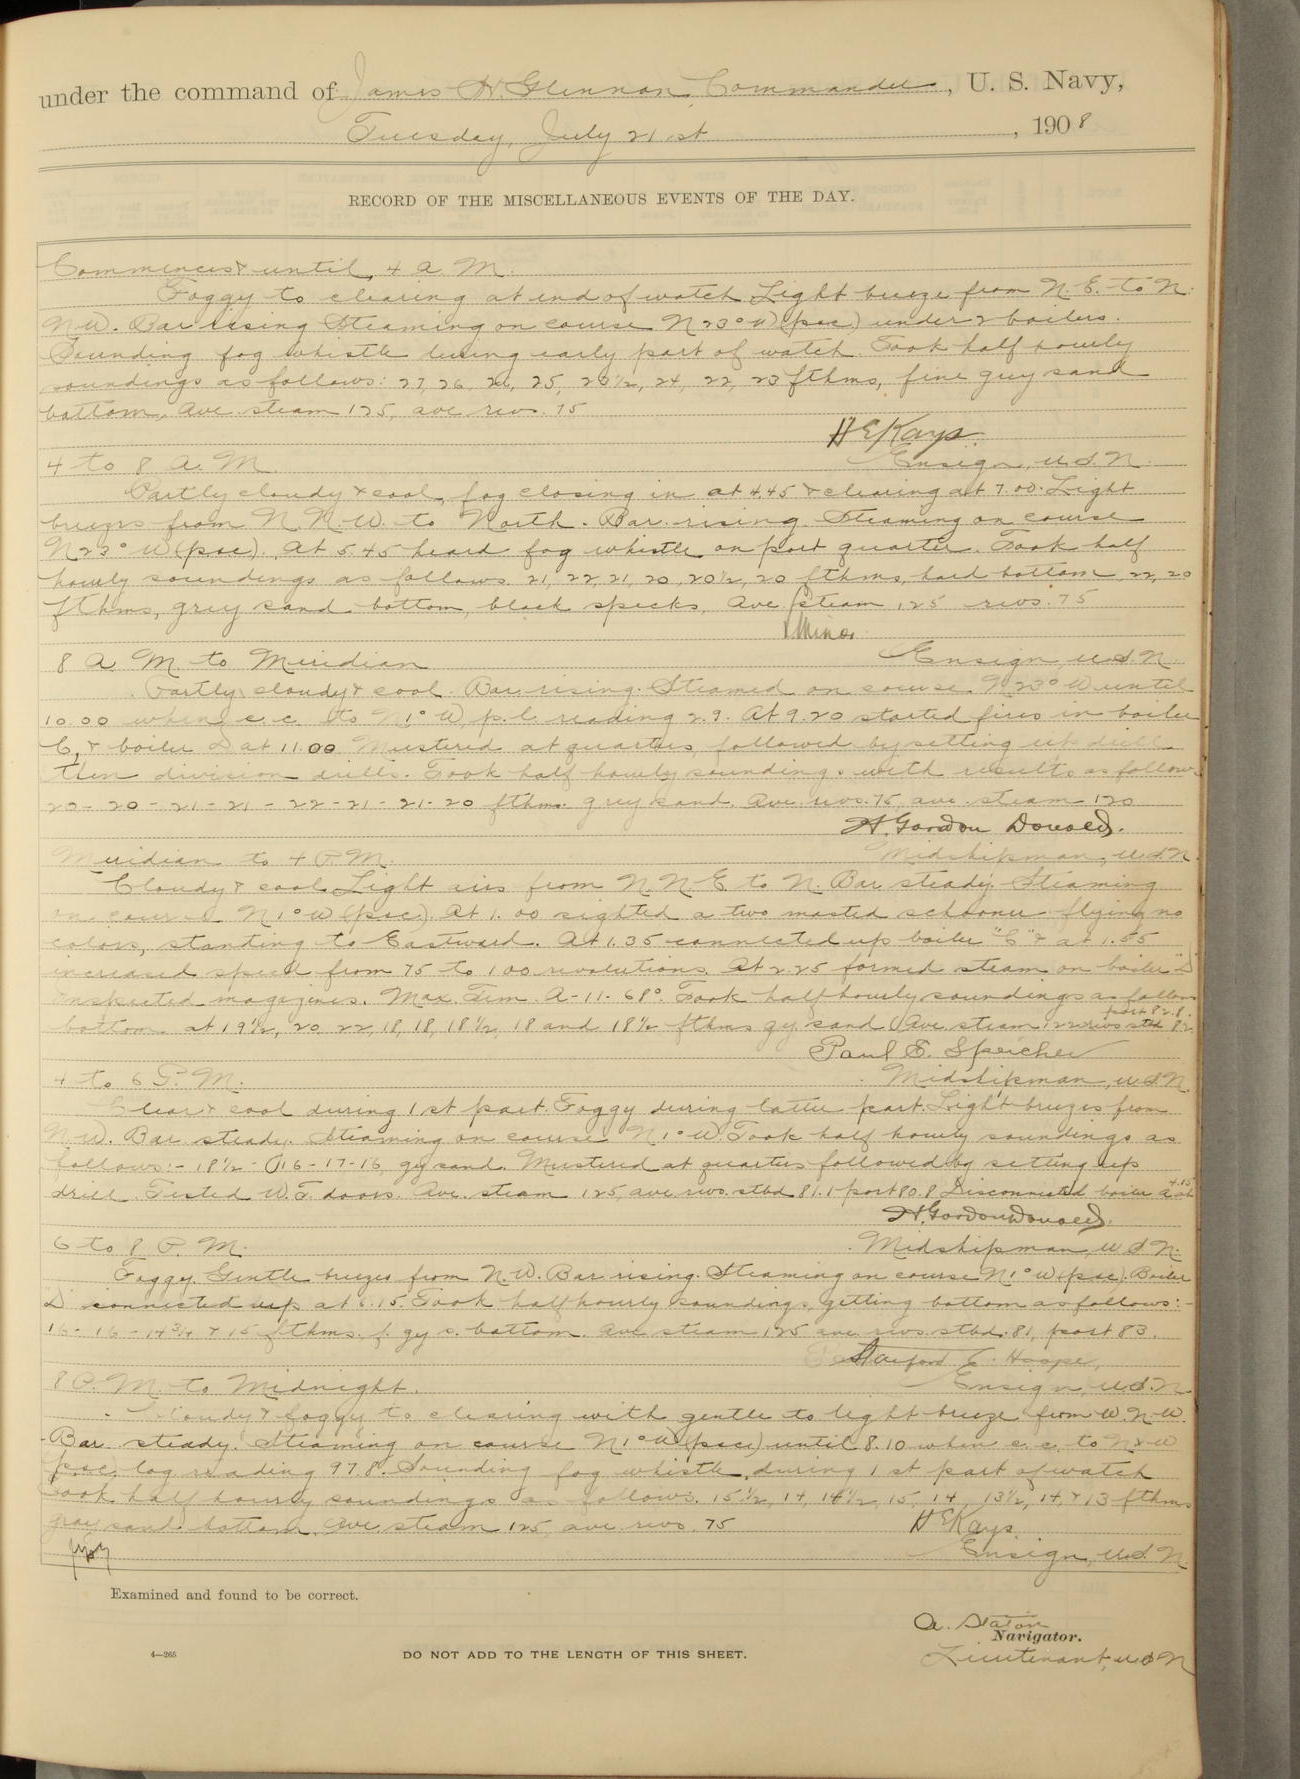 under the command of James H. Glennon, Commander, U. S. Navy,
Tuesday, July 21st, 1908
RECORD OF THE MISCELLANEOUS EVENTS OF THE DAY.
Commences & until 4 A. M.
Foggy to clearing at end of watch. Light breeze from N-E. to N.
N-W. Bar rising Steaming on course N23°W (psc) under 2 boilers.
Sounding fog whistle during early part of watch. Took half hourly
soundings as follows: 27, 26, 26, 25, 23½, 24, 22, 23 fthms, fine grey sand
bottom, Ave. steam 125, ave revs. 75
H E Kays
Ensign, U.S.N.
4 to 8 A. M.
Partly cloudy & cool, fog closing in at 4.45 & clearing at 7.00. Light
breezes from N. N.-W. to North. Bar. rising. Steaming on course
N23°W (psc). At 5.45 heard fog whistle on port quarter. Took half
hourly soundings as follows 21, 22, 21, 20, 20½, 20 fthms, hard bottom 22, 20
fthms, grey sand bottom, black specks, Ave steam 125 revs. 75
Ensign U.S.N
8 A. M. to Meridian
Partly cloudy & cool. Bar. rising. Steamed on course N23°W until
10.00 when c.c. to N1°W, p.l. reading 2.9. At 9.20 started fires in boiler
C, & boiler D at 11.00 Mustered at quarters, followed by setting up drill
then division drills. Took half hourly soundings with results as follows
20 - 20 - 21 - 21 - 22 - 21 - 21 - 20 fthms. grey sand. Ave. revs. 75, ave. steam 120
H. Gordon Donald.
Midshipman, U.S.N.
Meridian to 4 P.M.
Cloudy & cool. Light airs from N. N. E to N. Bar steady. Steaming
on course N1°W (psc). At 1.00 sighted a two masted schooner flying no
colors, standing to Eastward. At 1.35 connected up boiler "C" & at 1.55
increased speed from 75 to 100 revolutions. At 2.25 formed steam on boiler "D"
Inspected magazines. Max. Tem. A-11-68°. Took half hourly soundings as follows
bottom at 19½, 20, 22, 18, 18, 18½, 18 and 18½ fthms gy sand Ave. steam 122 revs stbd 82, port 82.8.
Paul E. Speicher
Midshipman, U.S.N.
4 to 6 P. M.
Clear & cool during 1st part. Foggy during latter part. Light breezes from
N.W. Bar. steady. Steaming on course N1°W. Took half hourly soundings as
follows:- 18½ - 16 - 17 - 16, gy sand. Mustered at quarters followed by setting up
drill. Tested W.T. doors. Ave. steam 125, ave revs. stbd 81.1 port 80.8 Disconnected boiler A at 4.15
H. Gordon Donald.
Midshipman, U.S.N.
6 to 8 P. M.
Foggy. Gentle breezes from N.W. Bar rising. Steaming on course N1°W (psc). Boiler
D connected up at 6.15. Took half hourly soundings, getting bottom as follows:-
16 - 16 - 14¾ & 15 fthms. f. gy s. bottom. Ave steam 125 ave revs. stbd. 81, port 83.
Stanford C. Hooper,
Ensign, U.S.N.
8 P. M. to Midnight.
Cloudy & foggy to clearing with gentle to light breeze from W. N-W.
Bar. steady. Steaming on course N1°W (psc) until 8.10 when c.c. to
psc, log reading 97.8. Sounding fog whistle during 1st part of watch
Took half hourly soundings as follows: 15½, 14, 14½, 15, 14, 13½, 14, & 13 fthms
gray sand bottom. Ave steam 125, ave revs. 75
H E Kays.
Ensign, U.S.N.
Examined and found to be correct.
A. Staton
Navigator.
Lieutenant, U.S.N
4—265
DO NOT ADD TO THE LENGTH OF THIS SHEET.